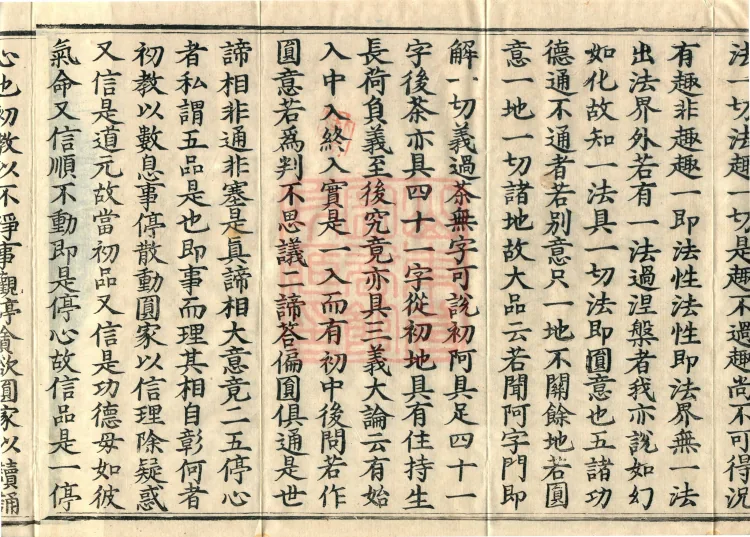 法一切法趣一切是趣不過趣尚不可得況
有趣非趣趣一即法性法性即法界無一法
出法界外若有一法過涅槃者我亦說如幻
如化故知一法具一切法即圓意也五諸功
德通不通者若別意只一地不關餘地若圓
意一地一切諸地故大品云若聞阿字門即
解一切義過茶無字可說初阿具足四十一
字後茶亦具四十一字從初地具有住持生
長荷負義至後究竟亦具三義大論云有始
入中入終入實是一入而有初中後問若作
圓意若為判不思議二諦答偏圓俱通是世
諦相非通非塞是真諦相大意竟二五停心
者私謂五品是也即事而理其相自彰何者
初教以數息事停散動圓家以信理除疑惑
又信是道元故當初品又信是功德母如彼
氣命又信順不動即是停心故信品是一停
心也初教以不淨事觀停貪欲圓家以讀誦